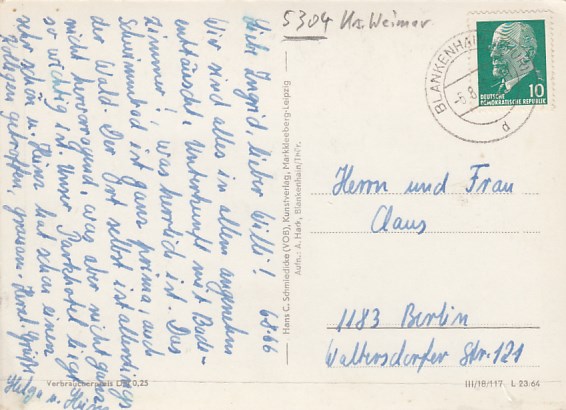 5304 Krs. Weimar
6.8.66
Liebe Ingrid, lieber Willi!
Wir sind alles in allem angenehm
enttäuscht, Unterkunft mit Bade-
zimmer, was herrlich ist. Das
Schwimmbad ist ganz prima, auch
der Wald. Der Ort selbst ist allerdings
nicht hervorragend, was aber nicht ganz
so wichtig ist. Unser Parkhotel liegt
sehr schön u. Heinz hat schon einen
Kollegen getroffen, Herzl. Grüße
Helga u. Heinz
Hans C. Schmiedicke (VOB), Kunstverlag, Markkleeberg-Leipzig
Aufn.: A. Hark, Blankenhain/Thür.
BLANKENHAIN
-6.8.
d
10
DEUTSCHE
DEMOKRATISCHE REPUBLIK
Herrn und Frau
Claus
1183 Berlin
Waltersdorfer Str. 121
Verbraucherpreis DM 0,25
III/18/117 L 23/64